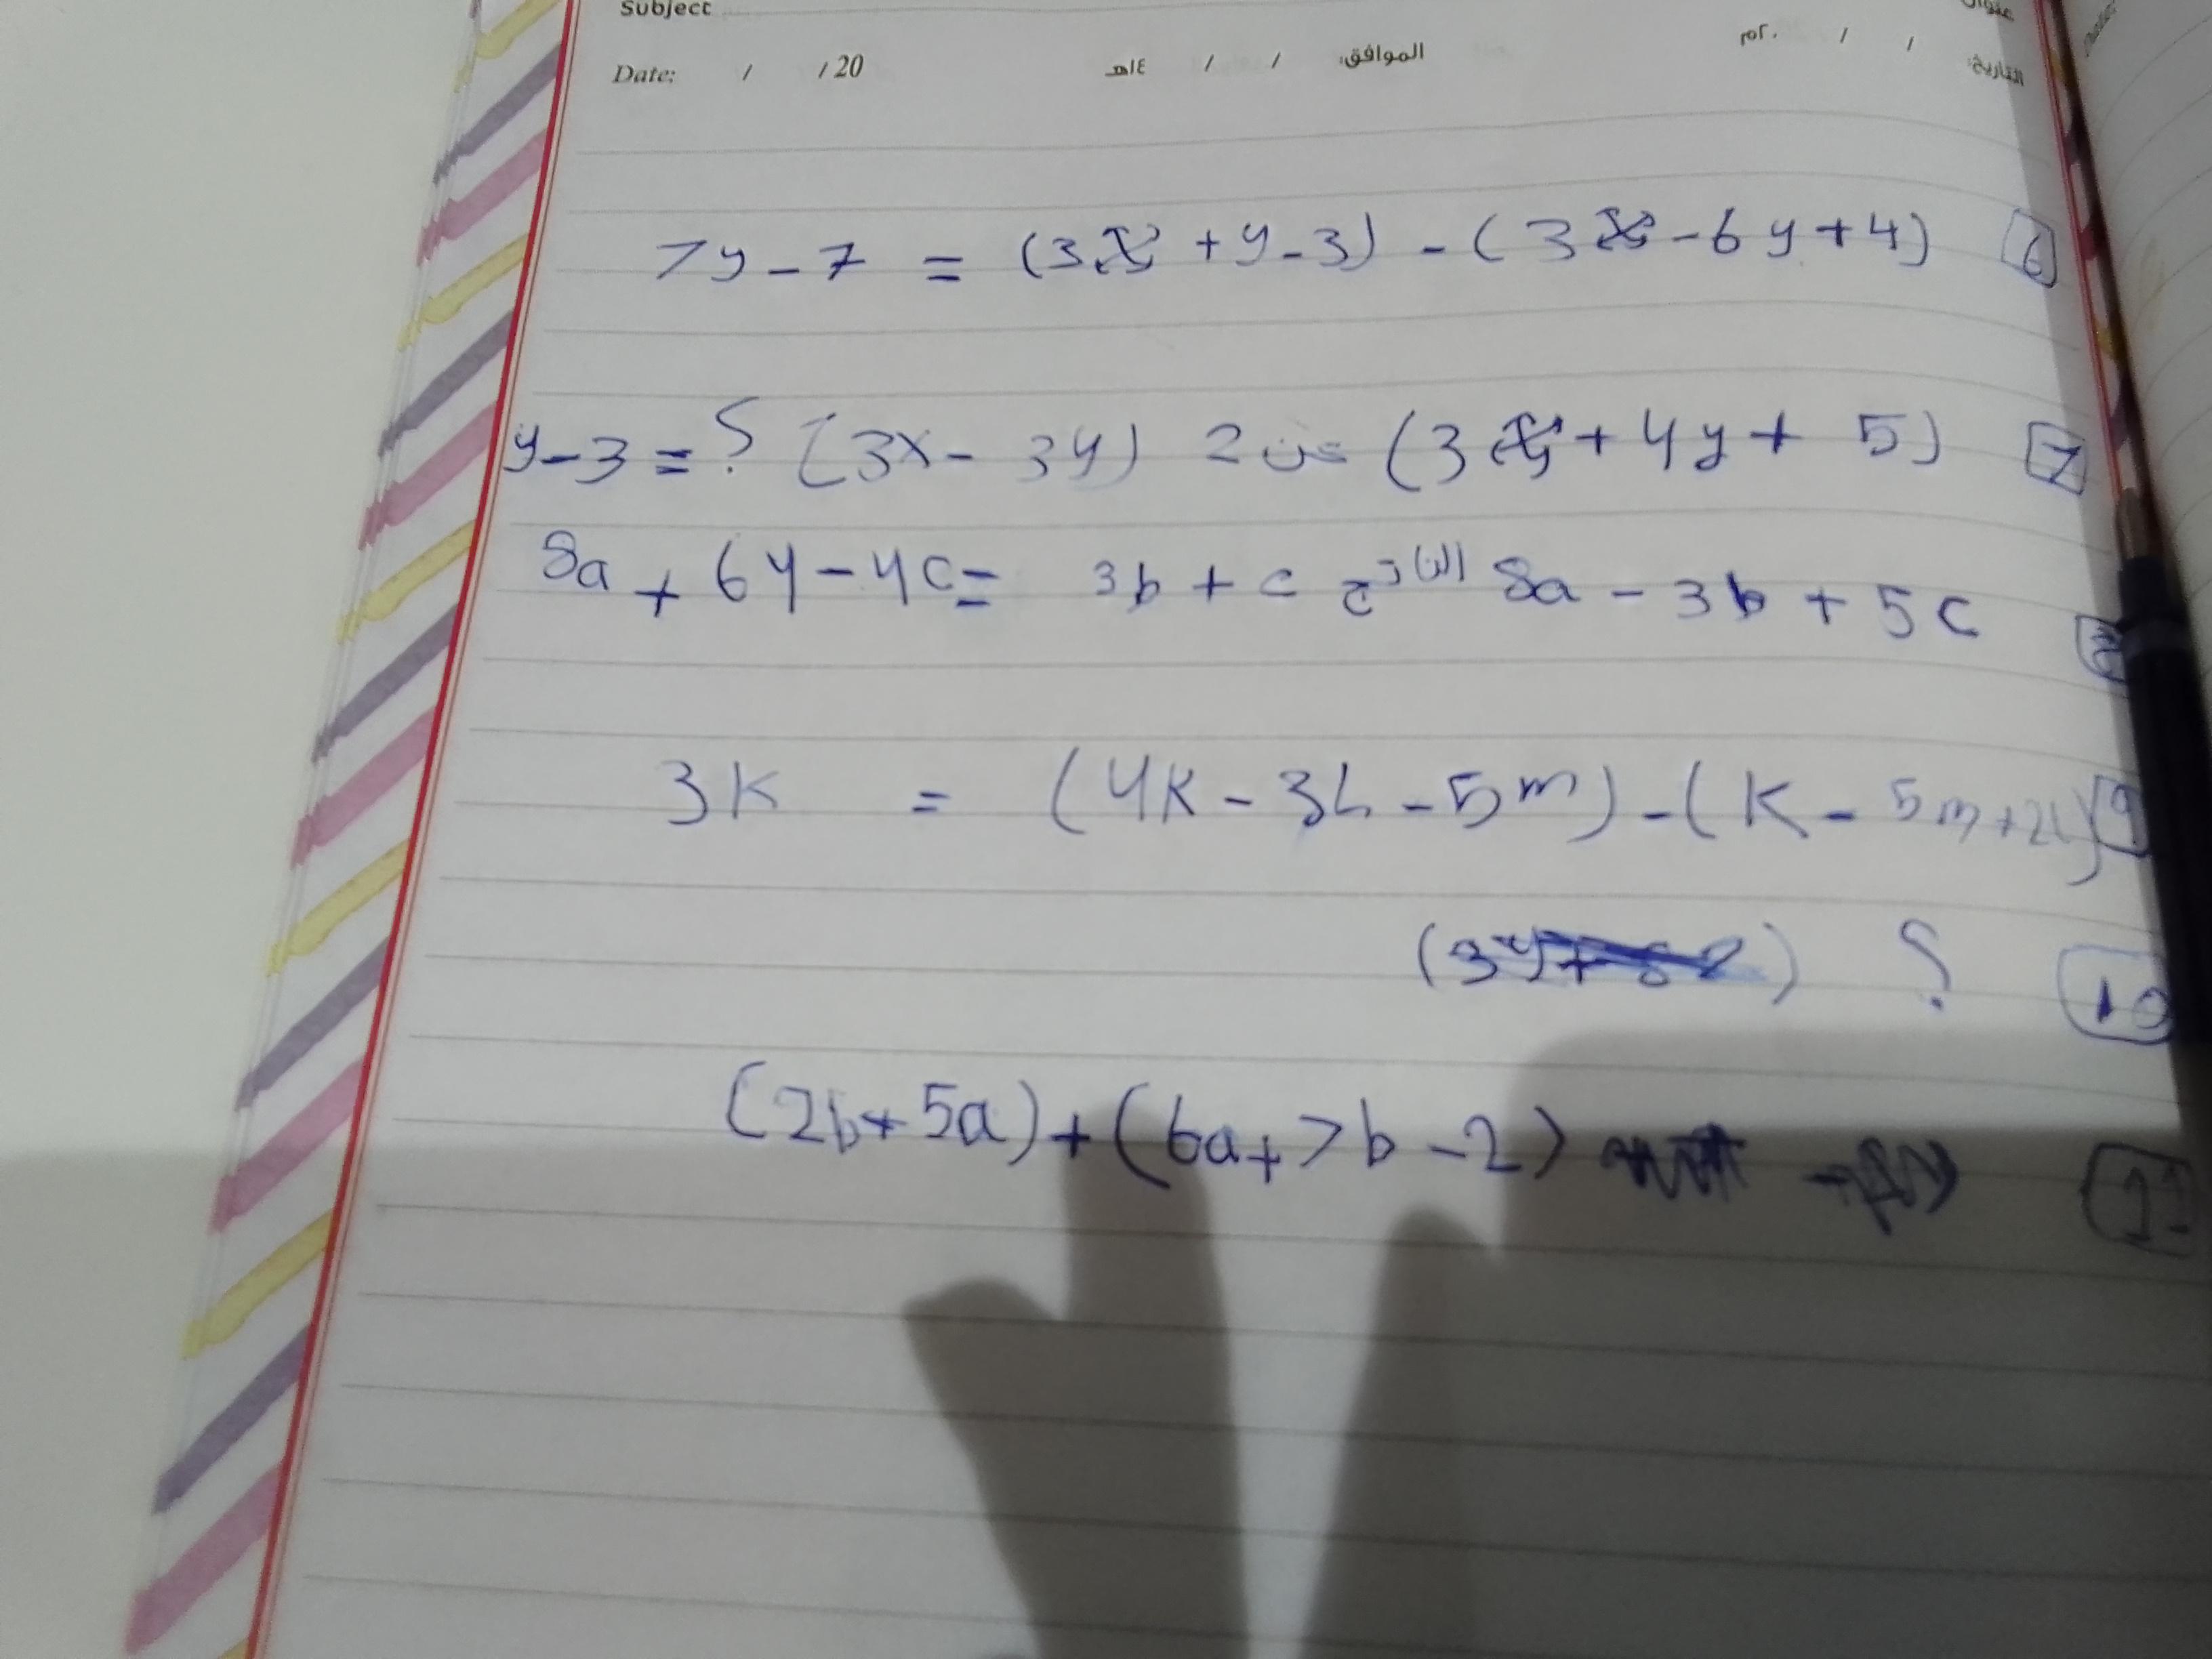 Subject
عنوان
Date: / / 20 الموافق: / / ١٤هـ التاريخ: / / ٢٠م
7y - 7 = (3x + y - 3) - (3x - 6y + 4) 6
y - 3 = ؟ (3x - 3y) 2 من (3x + 4y + 5) 7
8a + 6y - 4c = 3b + c الناتج 8a - 3b + 5c
3k = (4k - 3L - 5m) - (k - 5m + 2L) 9
؟ 10
(2b + 5a) + (6a + 7b - 2) 11